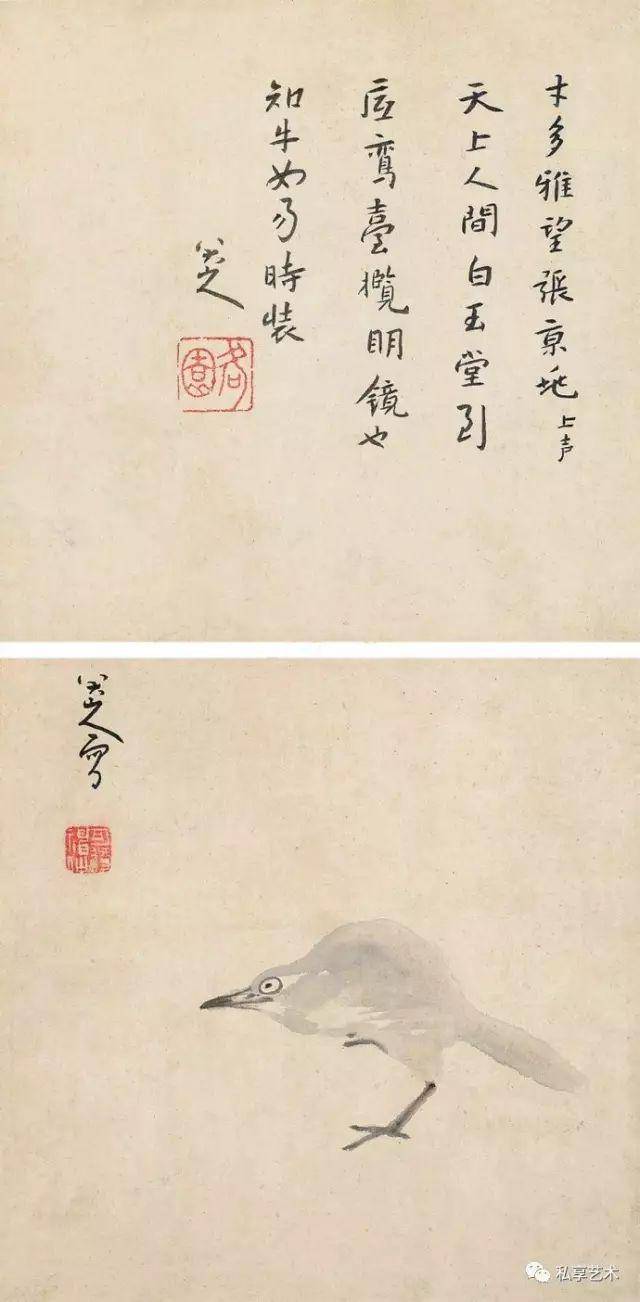 才多雅望張京兆上声
天上人間白玉堂到
底鸞臺攬明鏡也
知牛女易時裝
八大山人
八大山人寫
私享艺术